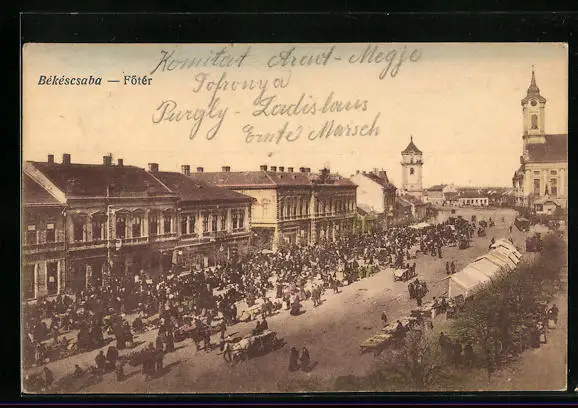 Komitat Arad-Megje
Békéscsaba — Főtér
Toronya
Purgly-Ladislaus
Ernte Marsch